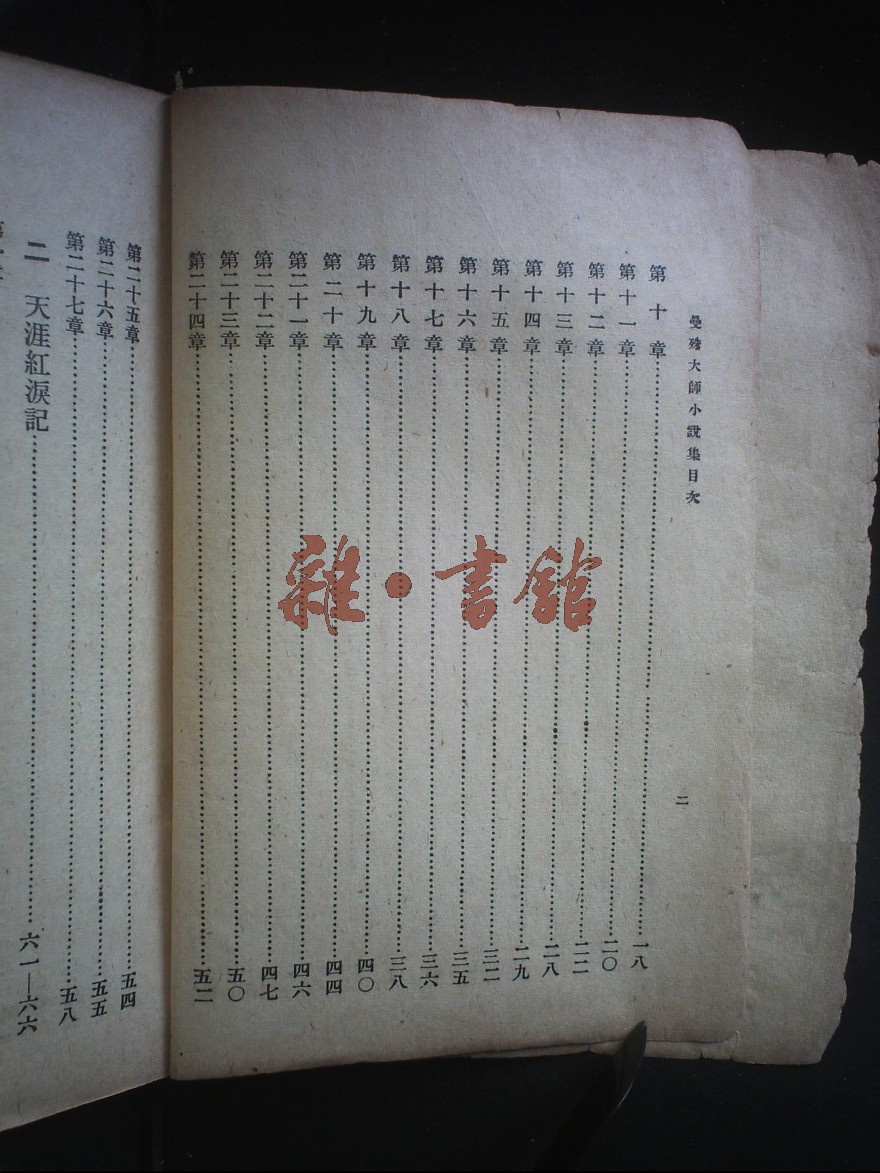 曼殊大師小說集目次
二
第十章……一八
第十一章……二〇
第十二章……二二
第十三章……二八
第十四章……二九
第十五章……三二
第十六章……三五
第十七章……三六
第十八章……三八
第十九章……四〇
第二十章……四四
第二十一章……四六
第二十二章……四七
第二十三章……五〇
第二十四章……五二
第二十五章……五四
第二十六章……五五
第二十七章……五八
二 天涯紅淚記……六一—六六
雜·書館